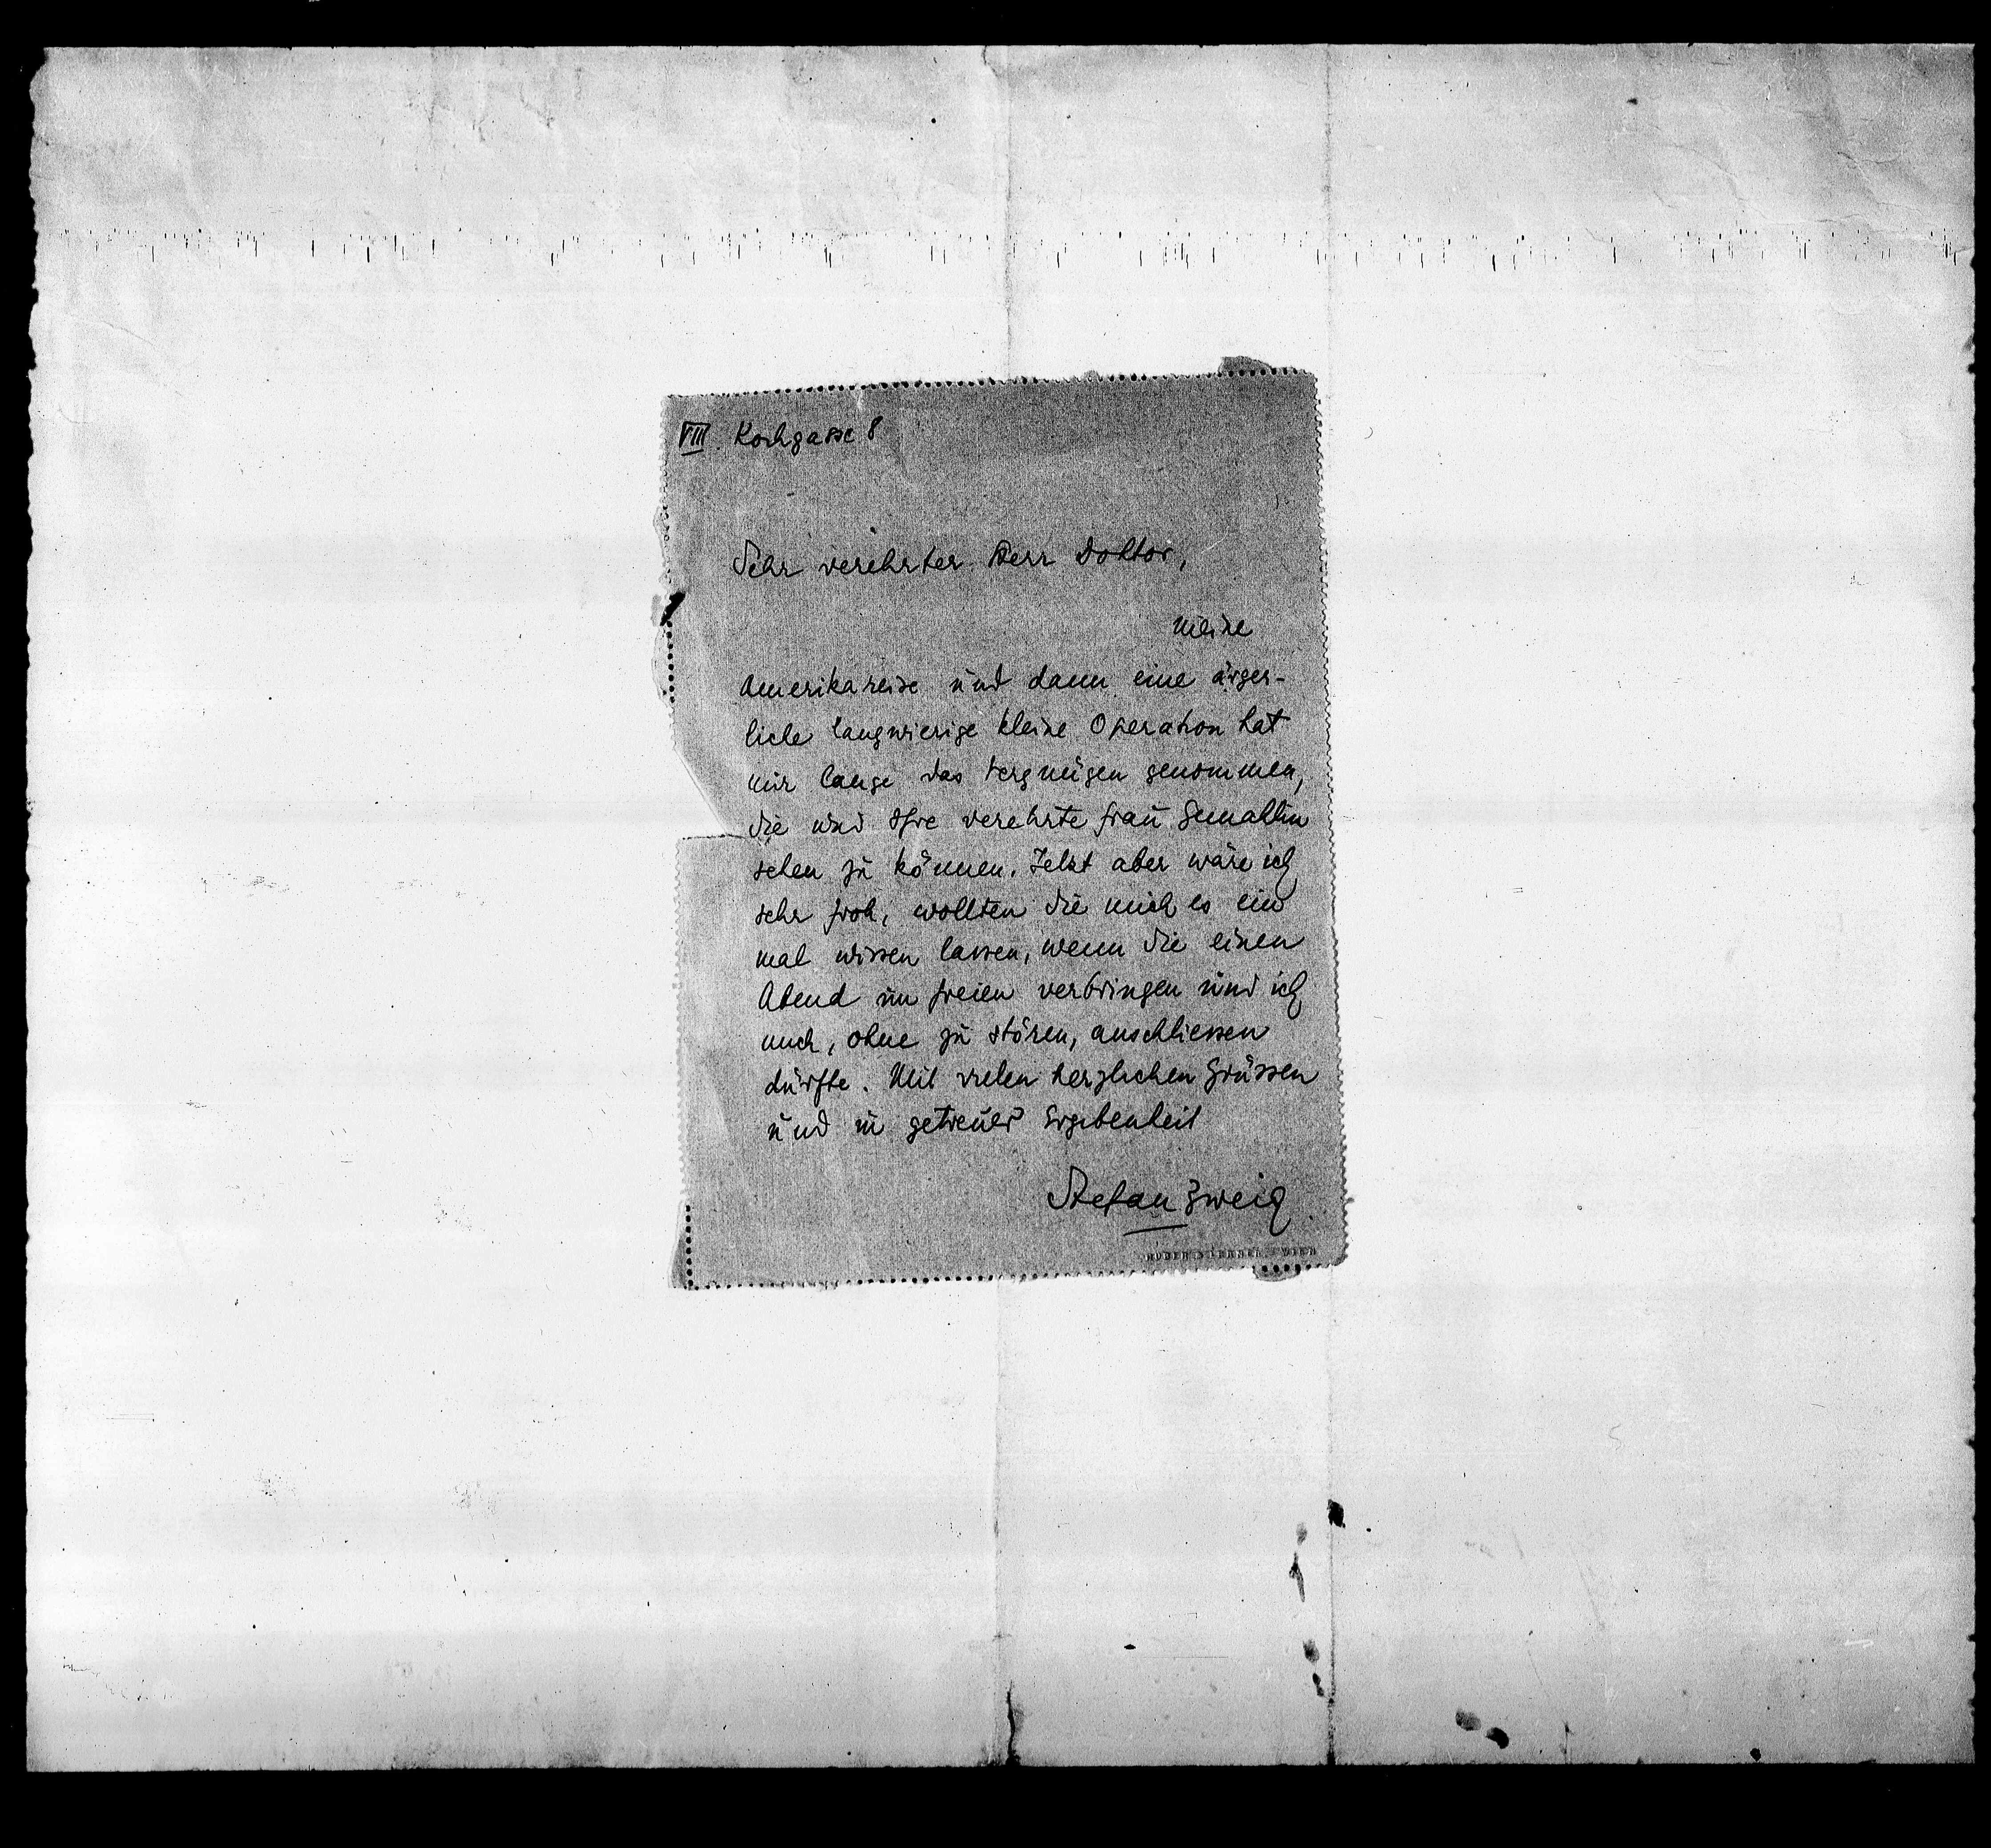 VIII. Kochgasse 8
Sehr verehrter Herr Doktor,
meine
Amerikareise und dann eine ärger-
liche langwierige kleine Operation hat
mir lange das Vergnügen genommen,
Sie und Ihre verehrte Frau Gemahlin
sehen zu können. Jetzt aber wäre ich
sehr froh, wollten Sie mich es ein
mal wissen lassen, wenn Sie einen
Abend im Freien verbringen und ich
mich, ohne zu stören, anschliessen
dürfte. Mit vielen herzlichen Grüssen
und in getreuer Ergebenheit
Stefan Zweig
WIEN